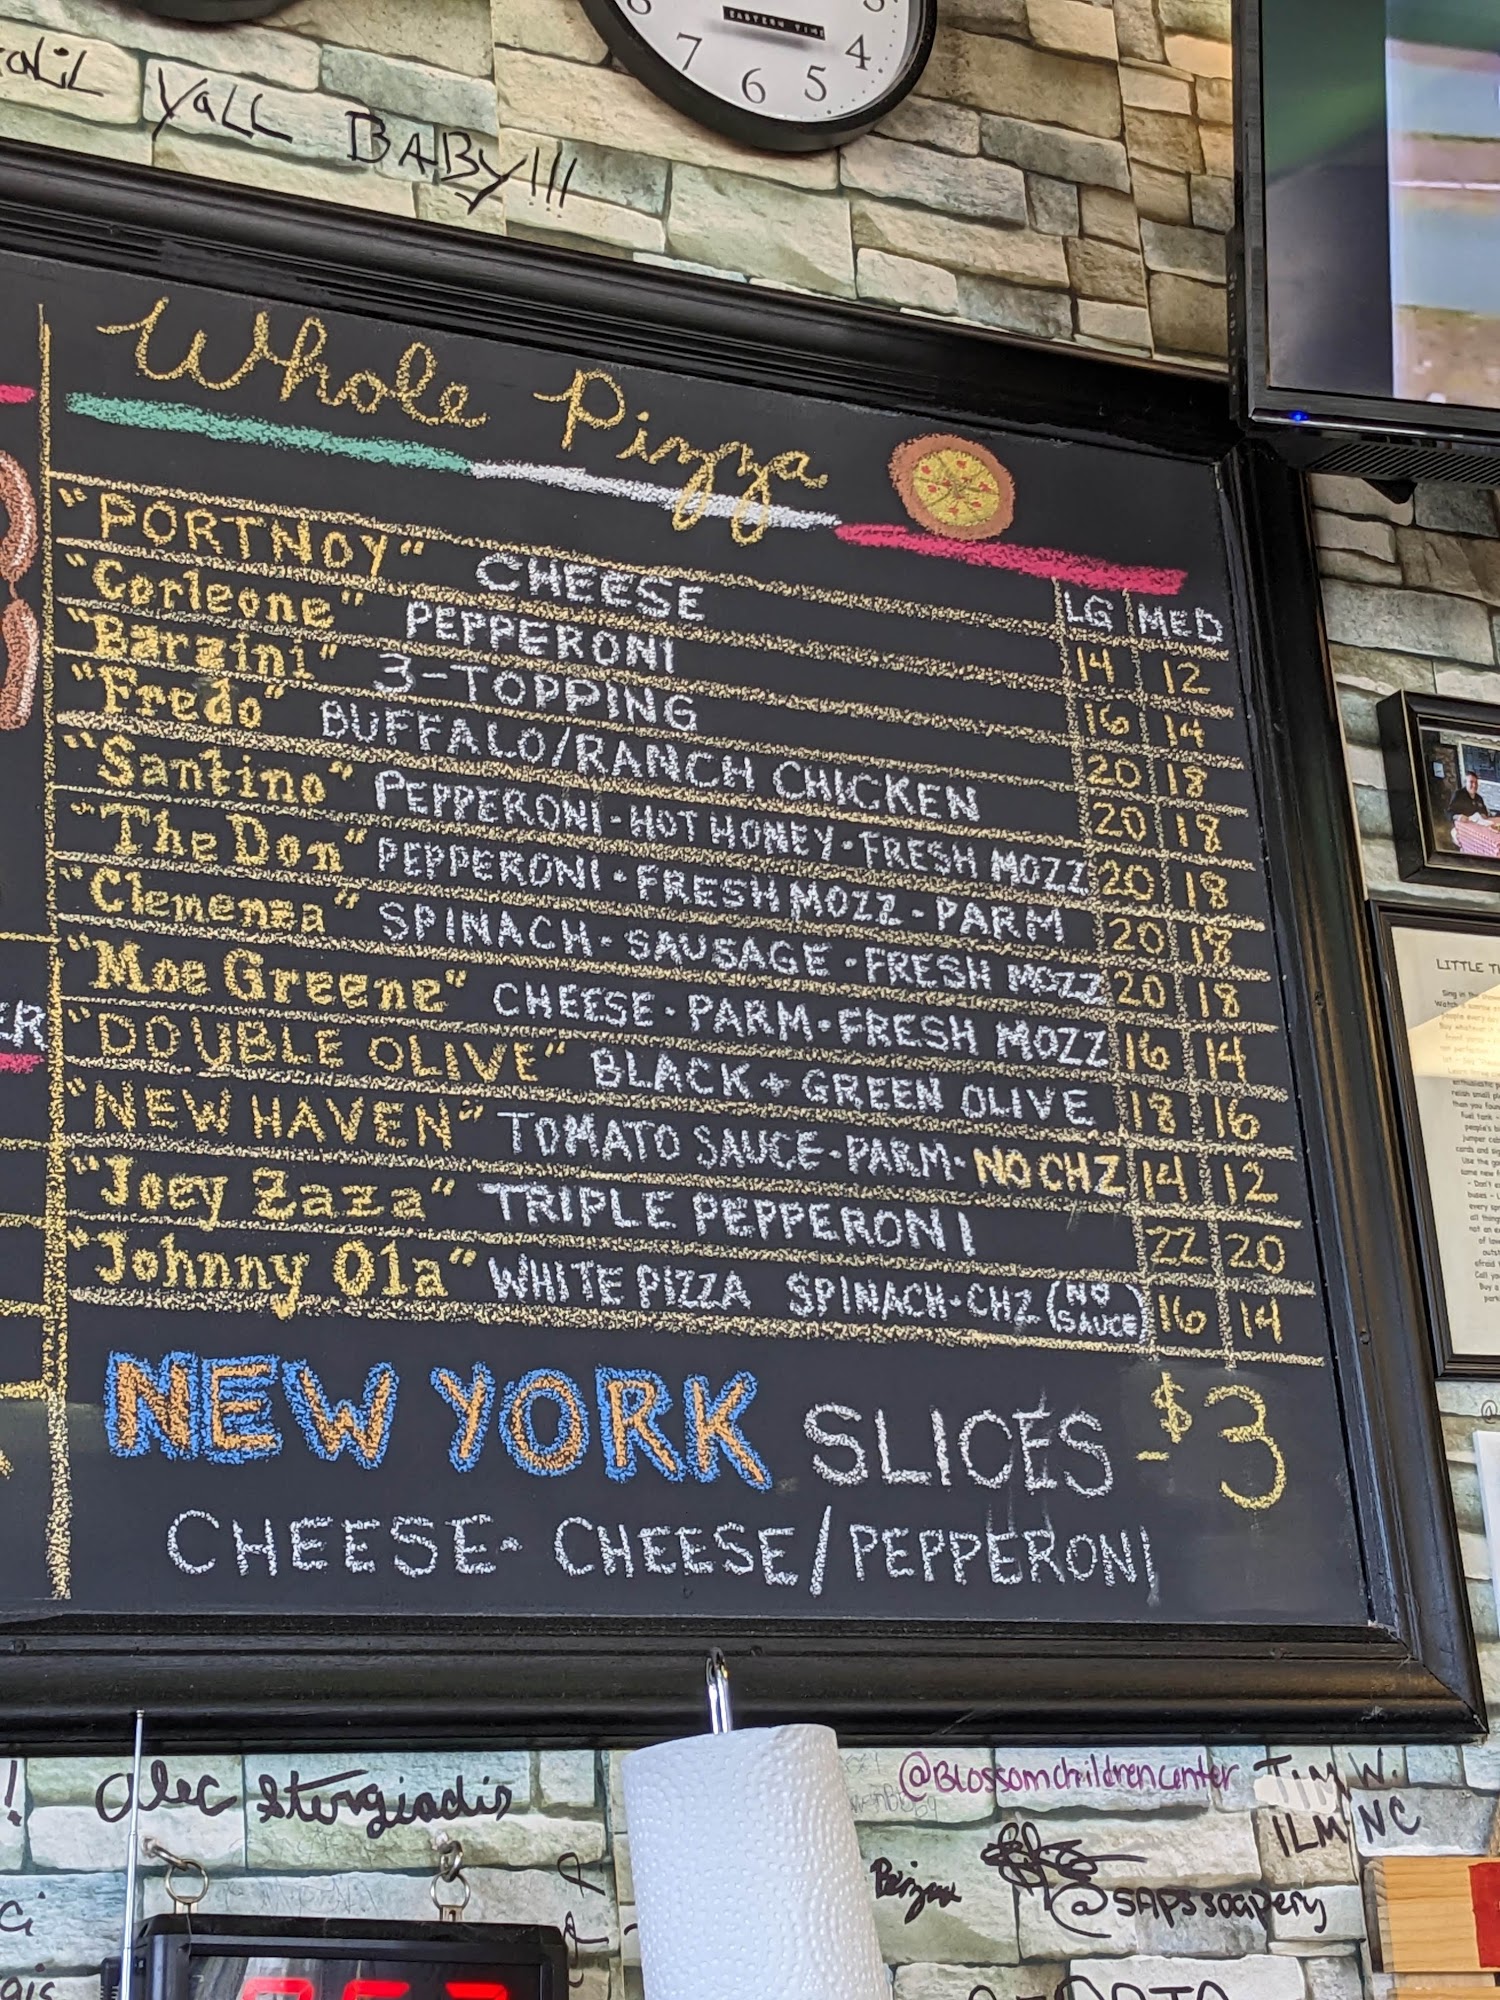 Yall BABY!!!
EASTERN TIME
7 6 5 4
Whole Pizza
LG MED
"PORTNOY" CHEESE 14 12
"Corleone" PEPPERONI 16 14
"Barzini" 3-TOPPING 20 18
"Fredo" BUFFALO/RANCH CHICKEN 20 18
"Santino" PEPPERONI-HOT HONEY-FRESH MOZZ 20 18
"The Don" PEPPERONI-FRESH MOZZ-PARM 20 18
"Clemenza" SPINACH-SAUSAGE-FRESH MOZZ 20 18
"Moe Greene" CHEESE-PARM-FRESH MOZZ 16 14
"DOUBLE OLIVE" BLACK + GREEN OLIVE 18 16
"NEW HAVEN" TOMATO SAUCE-PARM-NO CHZ 14 12
"Joey Zaza" TRIPLE PEPPERONI 22 20
"Johnny Ola" WHITE PIZZA SPINACH-CHZ (NO SAUCE) 16 14
NEW YORK SLICES - $3
CHEESE- CHEESE/PEPPERONI
ER
LITTLE
Alec Stergiadis
@Blossomchildrencenter
TIM W.
ILM NC
@SAPSsoapery